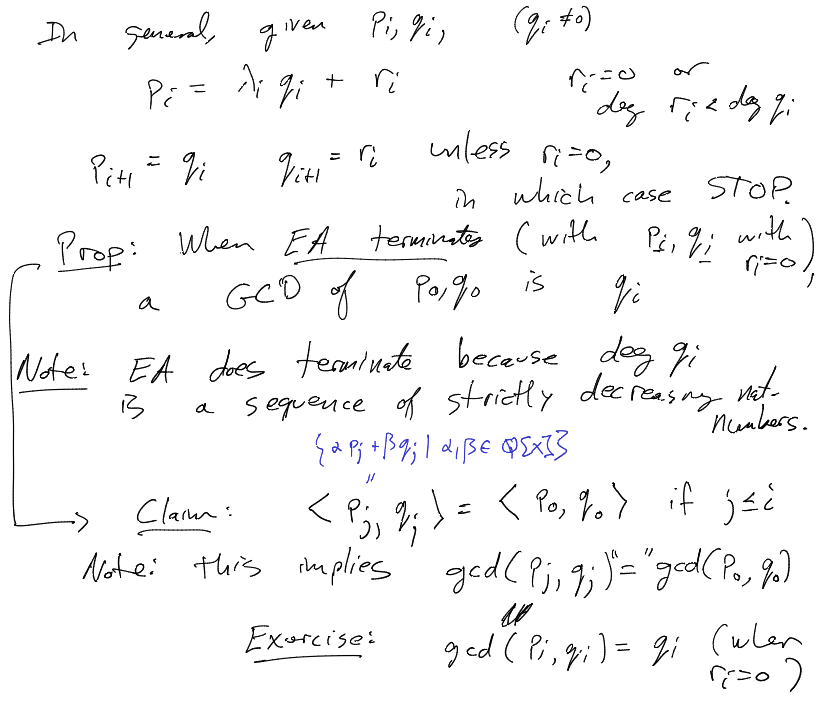 In general, given pi, qi, (qi ≠ 0)
pi = λi qi + ri    ri = 0 or
deg ri < deg qi
pi+1 = qi    qi+1 = ri unless ri = 0,
in which case STOP.
Prop: When EA terminates (with pi, qi with ri = 0),
a GCD of p0, q0 is qi
Note: EA does terminate because deg qi
is a sequence of strictly decreasing nat.
numbers.
{αpj + βqj | α, β ∈ Q[x]}
"
Claim: <pj, qj> = <p0, q0> if j ≤ i
Note: this implies gcd(pj, qj) "=" gcd(p0, q0)
Exercise: gcd(pi, qi) = qi (when
ri = 0)